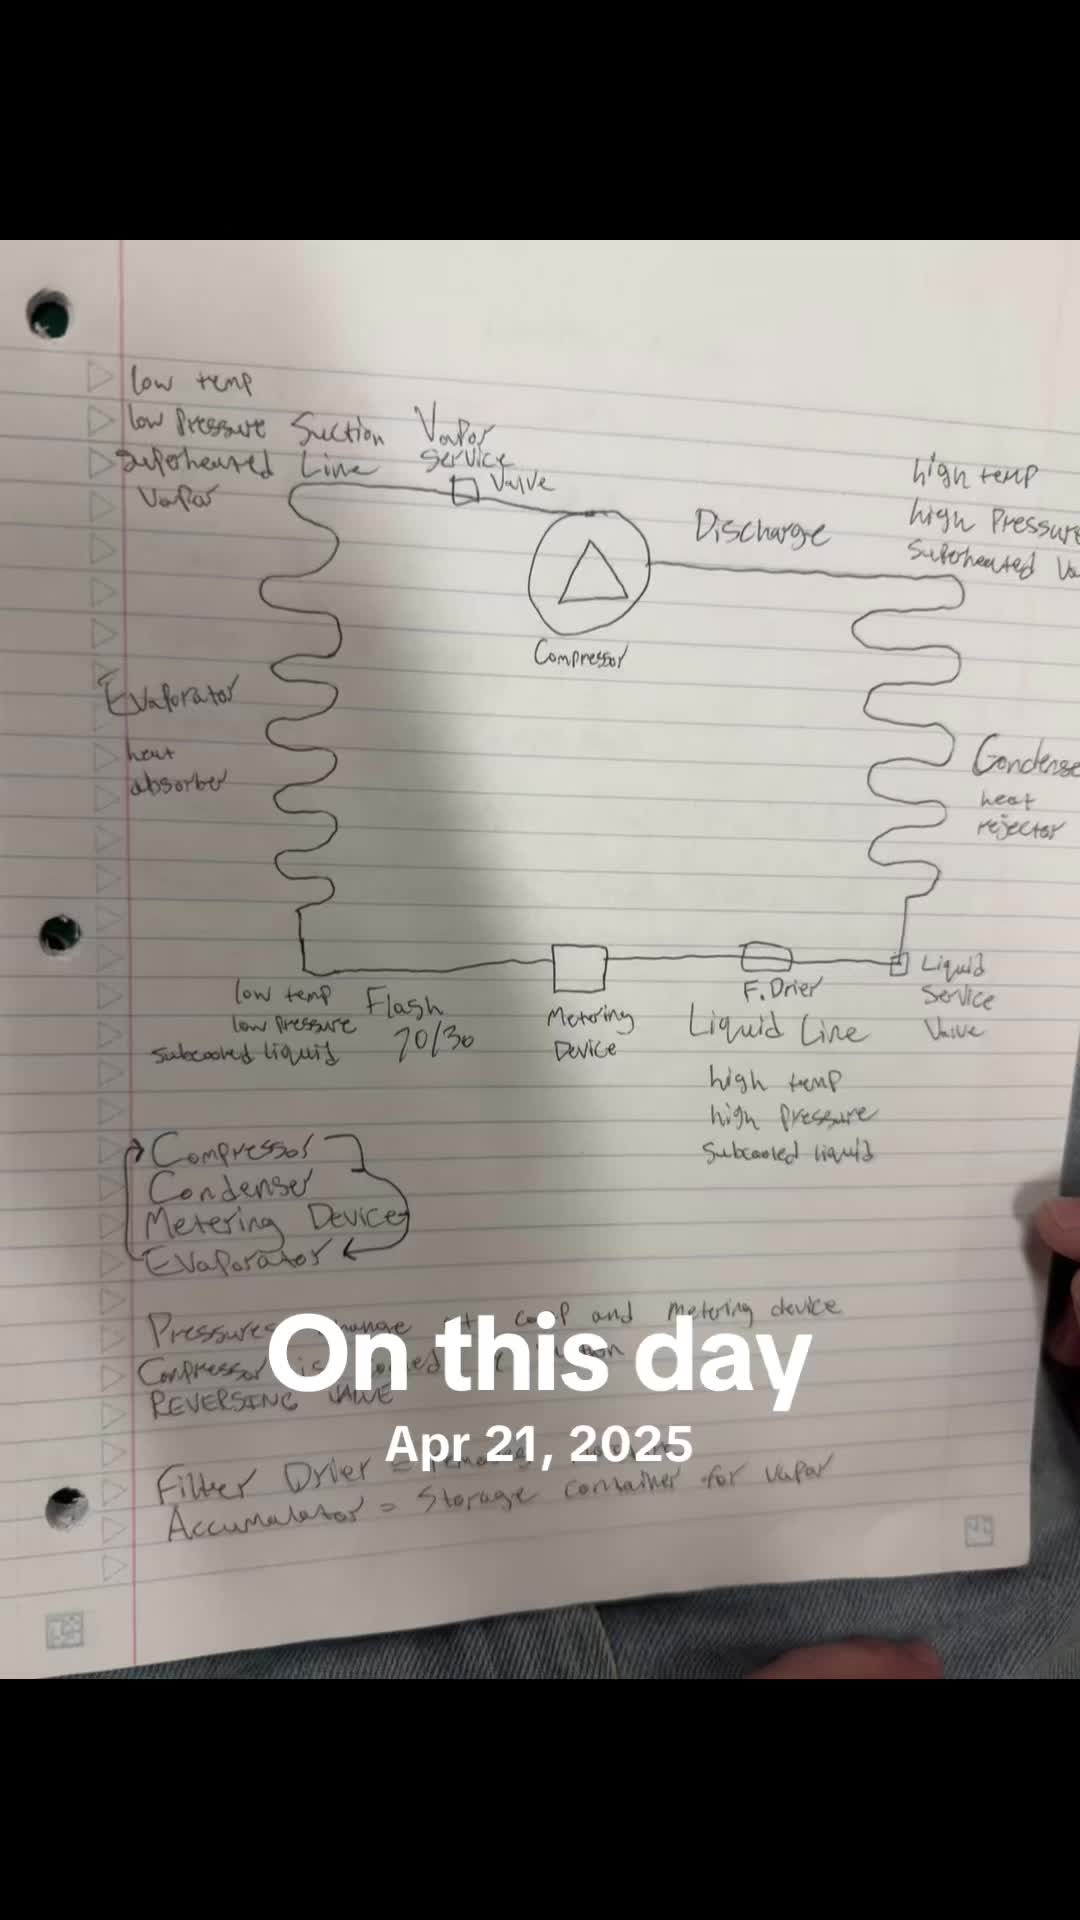 low temp
low Pressure
Superheated
Vapor
Suction
Line
Vapor
Service
Valve
Discharge
high temp
high Pressure
Superheated Va
Compressor
Evaporator
heat
absorber
Condense
heat
rejector
low temp
low pressure
subcooled liquid
Flash
70/30
Metering
Device
F. Drier
Liquid Line
Liquid
Service
Valve
high temp
high pressure
Subcooled liquid
Compressor
Condenser
Metering Device
Evaporator
Pressures change and metering device
Compressor is
REVERSING VALVE
On this day
Apr 21, 2025
Filter Drier =
Accumulator = Storage container for vapor